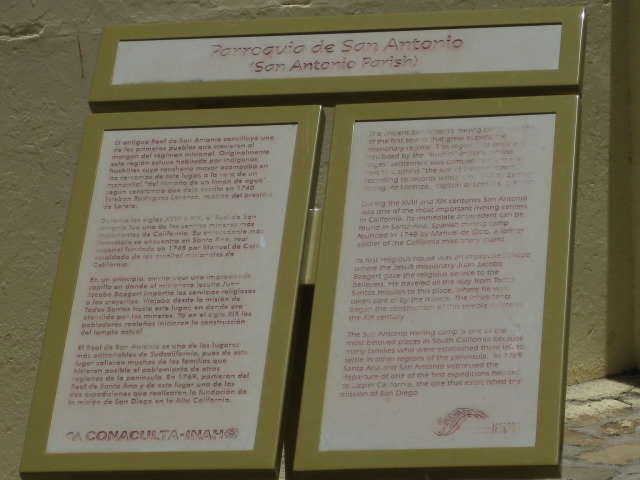 Parroquia de San Antonio
(San Antonio Parish)
El antiguo Real de San Antonio constituyó uno
de los primeros pueblos que crecieron al
margen del régimen misional. Originalmente
esta región estuvo habitada por indígenas
huchitíes cuya ranchería mayor acampaba en
las cercanías de este lugar, a la vera de un
manantial "del tamaño de un limón de agua"
según constancia que dejó escrita en 1740
Esteban Rodríguez Lorenzo, capitán del presidio
de Loreto.
Durante los siglos XVIII y XIX, el Real de San
Antonio fue uno de los centros mineros más
importantes de California. Su antecedente más
inmediato se encuentra en Santa Ana, real
español fundado en 1748 por Manuel de Ocio,
exsoldado de las escoltas misionales de
California.
En un principio, existía aquí una improvisada
capilla en donde el misionero jesuita Juan
Jacobo Baegert impartía los servicios religiosos
a los creyentes. Viajaba desde la misión de
Todos Santos hasta este lugar, en donde era
atendido por los mineros. Ya en el siglo XIX los
pobladores realeños iniciaron la construcción
del templo actual.
El Real de San Antonio es uno de los lugares
más entrañables de Sudcalifornia, pues de este
lugar salieron muchas de las familias que
hicieron posible el poblamiento de otras
regiones de la península. En 1769, partieron del
Real de Santa Ana y de este lugar una de las
dos expediciones que realizaron la fundación de
la misión de San Diego en la Alta California.
CONACULTA·INAH
The ancient San Antonio mining
of the first town that grew outside the
missionary regime. This region
inhabited by the whose
settlement was
to a spring "the size of a
according to records
Lorenzo, captain of Loreto's
During the XVIII and XIX centuries San Antonio
was one of the most important mining centers
in California. Its immediate antecedent can be
found in Santa Ana, Spanish mining camp
founded in 1748 by Manuel de Ocio, a former
soldier of the California missionary guard.
Its first religious house was an improvised chapel
where the Jesuit missionary Juan Jacobo
Baegert gave the religious service to the
believers. He traveled all the way from Todos
Santos mission to this place, where he was
taken care of by the miners. The inhabitants
began the construction of this temple in
the XIX century.
The San Antonio mining camp is one of the
most beloved places in South California because
many families who were established there left to
settle in other regions of the peninsula. In 1769
Santa Ana and San Antonio witnessed the
departure of one of the first expeditions headed
to Upper California, the one that established the
mission of San Diego